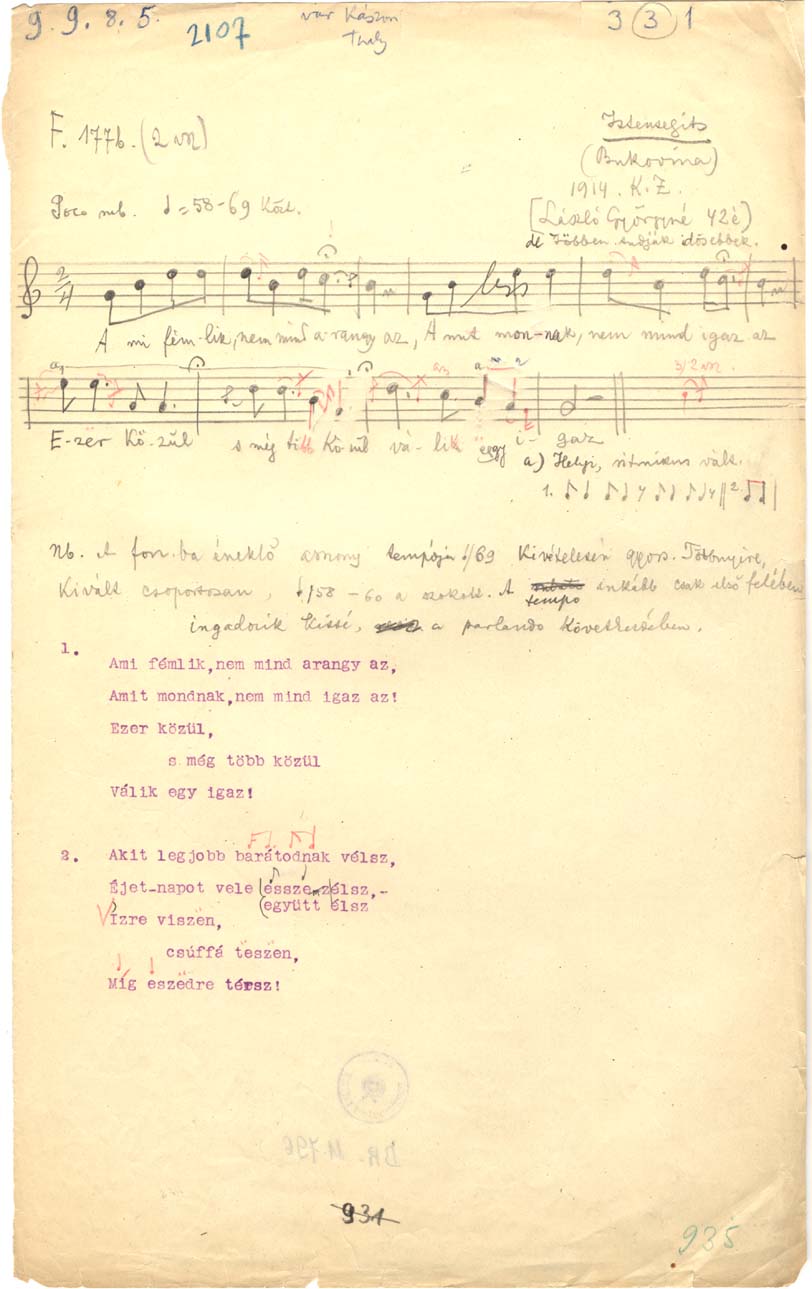 9. 9. 8. 5.
2107
3 3 1
F. 177b. (2 vsz)
Istensegits
(Bukovina)
1914. K.Z.
[László Györgyné 42é)
de többen tudják idősebbek.
Poco rub. ♩=58-69 közt.
2/4
A mi fém-lik, nem mind a-rangy az, A mit mon-nak, nem mind igaz az
a) a) a
3/2 vsz.
E-zër Kö-zül s még több Kö-zül vá-lik ëegy i-gaz
a) Helyi, ritmikus vált.
1. 2.
Nb. A fon.ba éneklő asszony tempója ♩/69 Kivételesen gyors. Többnyire,
Kivált csoportosan, ♩/58-60 a szokott. A tempo inkább csak első felében
ingadozik Kissé, a parlando következtében.
1.
Ami fémlik,nem mind arangy az,
Amit mondnak,nem mind igaz az!
Ezer közül,
s még több közül
Válik egy igaz!
2. Akit legjobb barátodnak vélsz,
Éjet-napot vele (éssze-zélsz,-
(együtt élsz
Vízre viszën,
csúffá tëszën,
Míg eszëdre térsz!
DR. 11.796
931
935